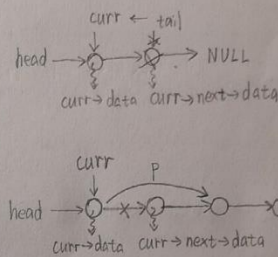 curr ← tail
head → → → NULL
curr→data curr→next→data
curr
P
head →
curr→data curr→next→data